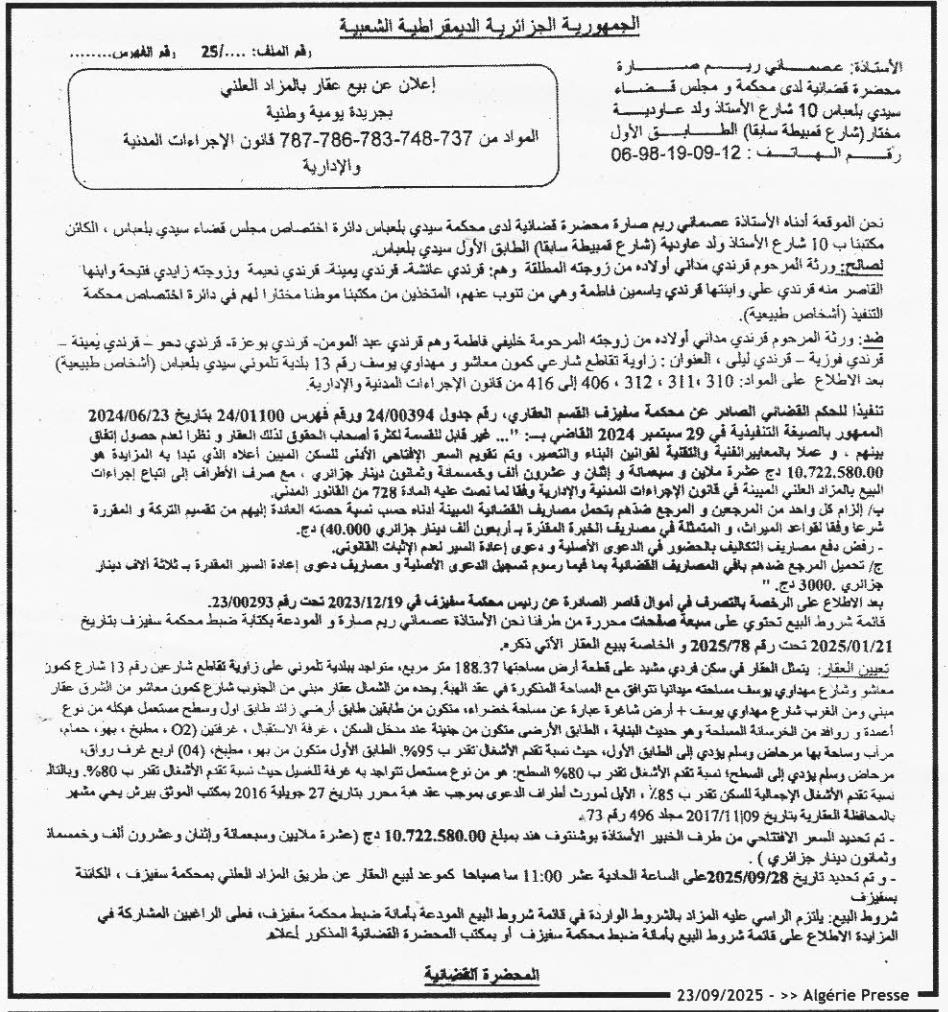 الجمهورية الجزائرية الديمقراطية الشعبية
رقم الملف: ..../25 رقم الفهرس........
الأستاذة: عصماني ريم صارة
محضرة قضائية لدى محكمة و مجلس قضاء
سيدي بلعباس 10 شارع الأستاذ ولد عاودية
مختار(شارع قمبيطة سابقا) الطابق الأول
رقم الهاتف : 06-98-19-09-12
إعلان عن بيع عقار بالمزاد العلني
بجريدة يومية وطنية
المواد من 737-748-783-786-787 قانون الإجراءات المدنية
والإدارية
نحن الموقعة أدناه الأستاذة عصماني ريم صارة محضرة قضائية لدى محكمة سيدي بلعباس دائرة اختصاص مجلس قضاء سيدي بلعباس ، الكائن
مكتبنا ب 10 شارع الأستاذ ولد عاودية (شارع قمبيطة سابقا) الطابق الأول سيدي بلعباس.
لصالح: ورثة المرحوم قرندي مداني أولاده من زوجته المطلقة وهم: قرندي عائشة- قرندي يمينة- قرندي نعيمة وزوجته زايدي فتيحة وابنها
القاصر منه قرندي علي وابنتها قرندي ياسمين فاطمة وهي من تنوب عنهم، المتخذين من مكتبنا موطنا مختارا لهم في دائرة اختصاص محكمة
التنفيذ (أشخاص طبيعية).
ضد: ورثة المرحوم قرندي مداني أولاده من زوجته المرحومة خليفي فاطمة وهم قرندي عبد المومن- قرندي بوعزة- قرندي دحو – قرندي يمينة –
قرندي فوزية – قرندي ليلى ، العنوان : زاوية تقاطع شارعي كمون معاشو و مهداوي يوسف رقم 13 بلدية تلموني سيدي بلعباس (أشخاص طبيعية)
بعد الاطلاع على المواد: 310 ،311 ، 312 ، 406 إلى 416 من قانون الإجراءات المدنية والإدارية.
تنفيذا للحكم القضائي الصادر عن محكمة سفيزف القسم العقاري، رقم جدول 24/00394 ورقم فهرس 24/01100 بتاريخ 2024/06/23
الممهور بالصيغة التنفيذية في 29 سبتمبر 2024 القاضي بـ: "... غير قابل للقسمة لكثرة أصحاب الحقوق لذلك العقار و نظرا لعدم حصول إتفاق
بينهم ، و عملا بالمعايير الفنية والتقنية لقوانين البناء والتعمير، وتم تقويم السعر الإفتتاحي الأدنى للسكن المبين أعلاه الذي تبدا به المزايدة هو
10.722.580.00 دج عشرة ملاين و سبعمائة و إثنان و عشرون ألف وخمسمائة وثمانون دينار جزائري ، مع صرف الأطراف إلى اتباع إجراءات
البيع بالمزاد العلني المبينة في قانون الإجراءات المدنية والإدارية وفقا لما نصت عليه المادة 728 من القانون المدني.
ب/ إلزام كل واحد من المرجعين و المرجع ضدهم بتحمل مصاريف القضائية المبينة أدناه حسب نسبة حصته العائدة إليهم من تقسيم التركة و المقررة
شرعا وفقا لقواعد الميراث، و المتمثلة في مصاريف الخبرة المقدرة بـ أربعون ألف دينار جزائري (40.000) دج.
- رفض دفع مصاريف التكاليف بالحضور في الدعوى الأصلية و دعوى إعادة السير لعدم الإثبات القانوني.
ج/ تحميل المرجع ضدهم باقي المصاريف القضائية بما فيما رسوم تسجيل الدعوى الأصلية و مصاريف دعوى إعادة السير المقدرة بـ ثلاثة ألاف دينار
جزائري .3000 دج. "
بعد الاطلاع على الرخصة بالتصرف في أموال قاصر الصادرة عن رئيس محكمة سفيزف في 2023/12/19 تحت رقم 23/00293.
قائمة شروط البيع تحتوي على سبعة صفحات محررة من طرفنا نحن الأستاذة عصماني ريم صارة و المودعة بكتابة ضبط محكمة سفيزف بتاريخ
2025/01/21 تحت رقم 2025/78 و الخاصة ببيع العقار الآتي ذكره.
تعيين العقار: يتمثل العقار في سكن فردي مشيد على قطعة أرض مساحتها 188.37 متر مربع، متواجد ببلدية تلموني على زاوية تقاطع شارعين رقم 13 شارع كمون
معاشو وشارع مهداوي يوسف مساحته ميدانيا تتوافق مع المساحة المذكورة في عقد الهبة. يحده من الشمال عقار مبني من الجنوب شارع كمون معاشو من الشرق عقار
مبني ومن الغرب شارع مهداوي يوسف + أرض شاغرة عبارة عن مساحة خضراء، متكون من طابقين طابق أرضي زائد طابق اول وسطح مستعمل هيكله من نوع
أعمدة و روافد من الخرسانة المسلحة وهو حديث البناية ، الطابق الأرضي متكون من جنينة عند مدخل السكن ، غرفة الاستقبال ، غرفتين (O2 ، مطبخ ، بهو، حمام،
مرآب وساحة بها مرحاض وسلم يؤدي إلى الطابق الأول، حيث نسبة تقدم الأشغال تقدر ب 95%. الطابق الأول متكون من بهو، مطبخ، (04) اربع غرف رواق،
مرحاض وسلم يؤدي إلى السطح؛ نسبة تقدم الأشغال تقدر ب 80% السطح: هو من نوع مستعمل تتواجد به غرفة للغسيل حيث نسبة تقدم الأشغال تقدر ب 80%. وبالتالي
نسبة تقدم الأشغال الإجمالية للسكن تقدر ب 85٪ ، الأيل لمورث أطراف الدعوى بموجب عقد هبة محرر بتاريخ 27 جويلية 2016 بمكتب الموثق بيرش يحي مشهر
بالمحافظة العقارية بتاريخ 09|2017/11 مجلد 496 رقم 73.
- تم تحديد السعر الافتتاحي من طرف الخبير الأستاذة بوشنتوف هند بمبلغ 10.722.580.00 دج (عشرة ملايين وسبعمائة وإثنان وعشرون ألف وخمسمائة
وثمانون دينار جزائري ) .
- و تم تحديد تاريخ 2025/09/28على الساعة الحادية عشر 11:00 سا صباحا كموعد لبيع العقار عن طريق المزاد العلني بمحكمة سفيزف ، الكائنة
بسفيزف
شروط البيع: يلتزم الراسي عليه المزاد بالشروط الواردة في قائمة شروط البيع المودعة بأمانة ضبط محكمة سفيزف، فعلى الراغبين المشاركة في
المزايدة الاطلاع على قائمة شروط البيع بأمانة ضبط محكمة سفيزف أو بمكتب المحضرة القضائية المذكور أعلاه
المحضرة القضائية
23/09/2025 - >> Algérie Presse